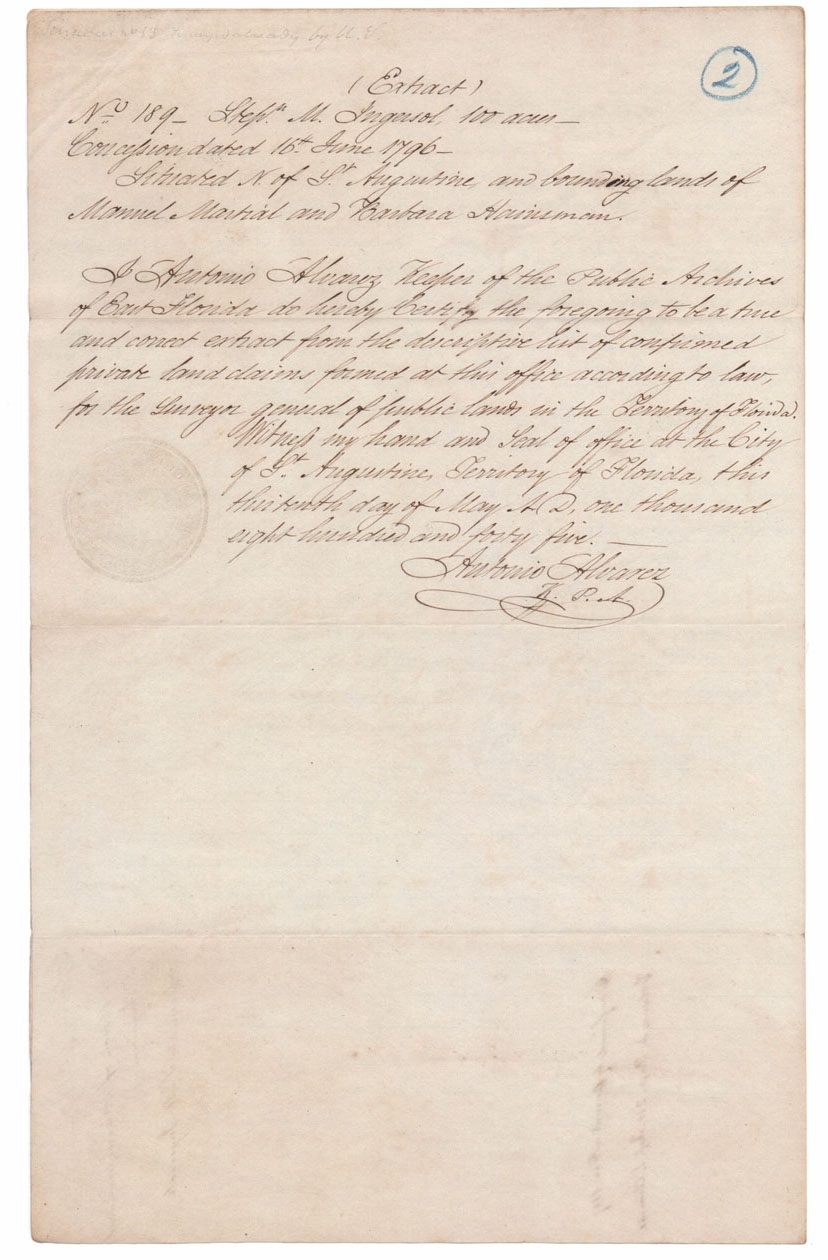 2
(Extract)
No 189 - Steph. M. Ingersol, 100 acres -
Concession dated 16th June 1796 -
Situated N. of St Augustine, and bounding lands of
Manuel Martial and Barbara Hainsman.
I Antonio Alvarez, Keeper of the Public Archives
of East Florida do hereby Certify the foregoing to be a true
and correct extract from the descriptive list of confirmed
private land claims formed at this office according to law,
for the Surveyor general of public lands in the Territory of Florida.
Witness my hand and Seal of office at the City
of St Augustine, Territory of Florida, this
thirteenth day of May A.D. one thousand
eight hundred and forty five. -
Antonio Alvarez
K. P. A.